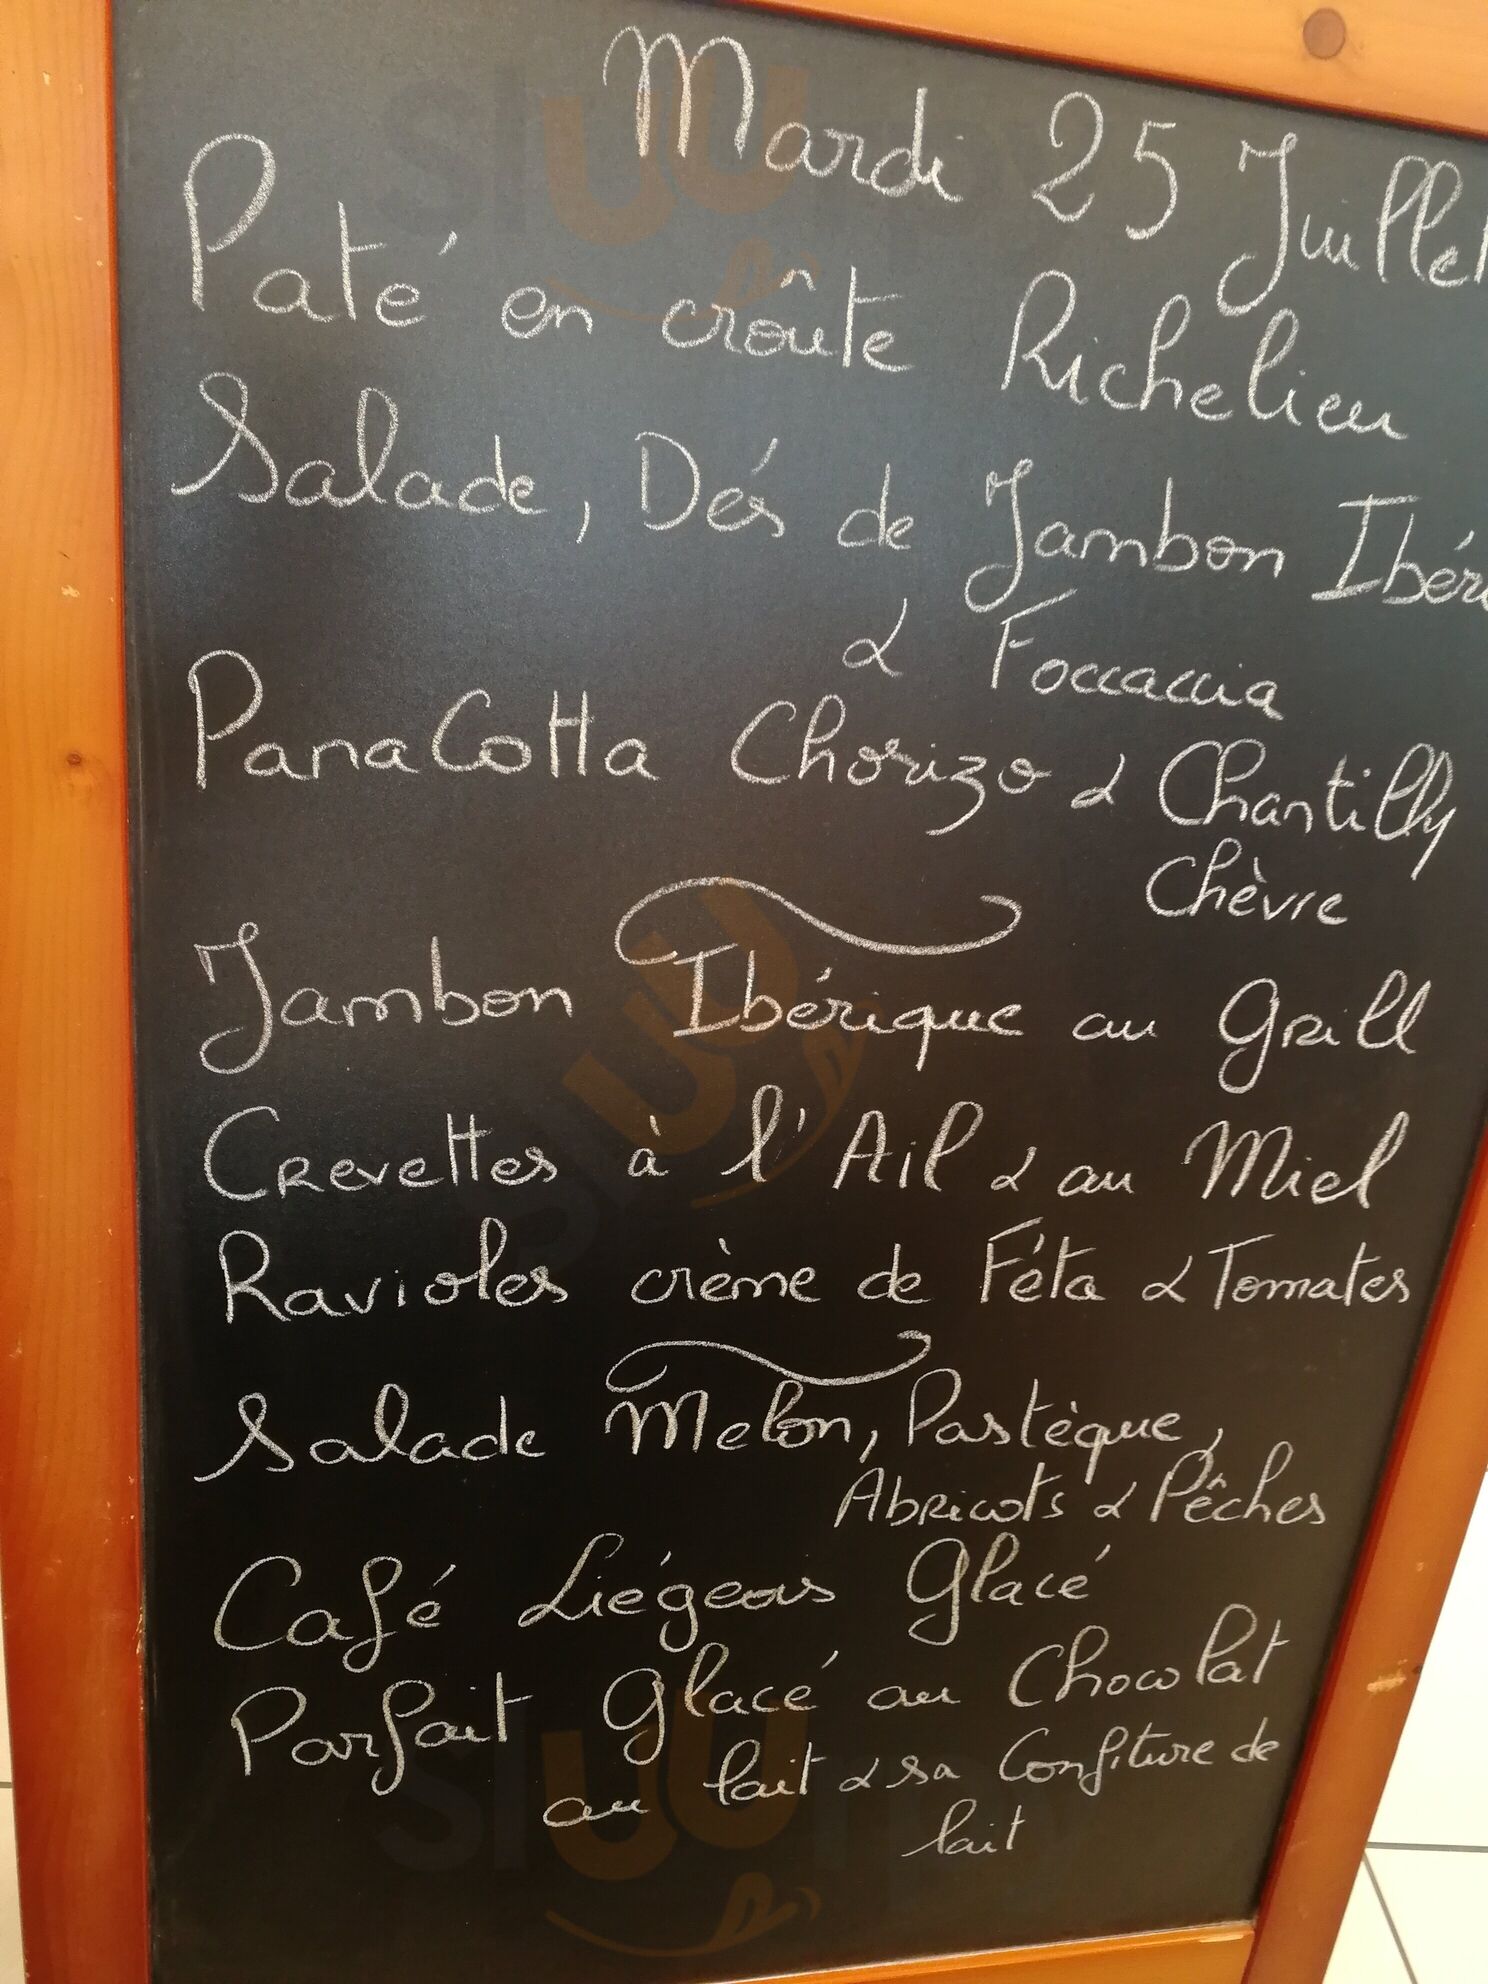 Mardi 25 Juillet
Paté en croûte Richelieu
Salade, Dés de Jambon Ibéri
& Foccaccia
PanaCotta Chorizo & Chantilly
Chèvre
Jambon Ibérique au Grill
Crevettes à l'Ail & au Miel
Ravioles crème de Féta & Tomates
Salade Melon, Pastèque,
Abricots & Pêches
Café Liégeois Glacé
Parfait Glacé au Chocolat
au lait & sa Confiture de
lait
sluurpy
sluurpy
sluurpy